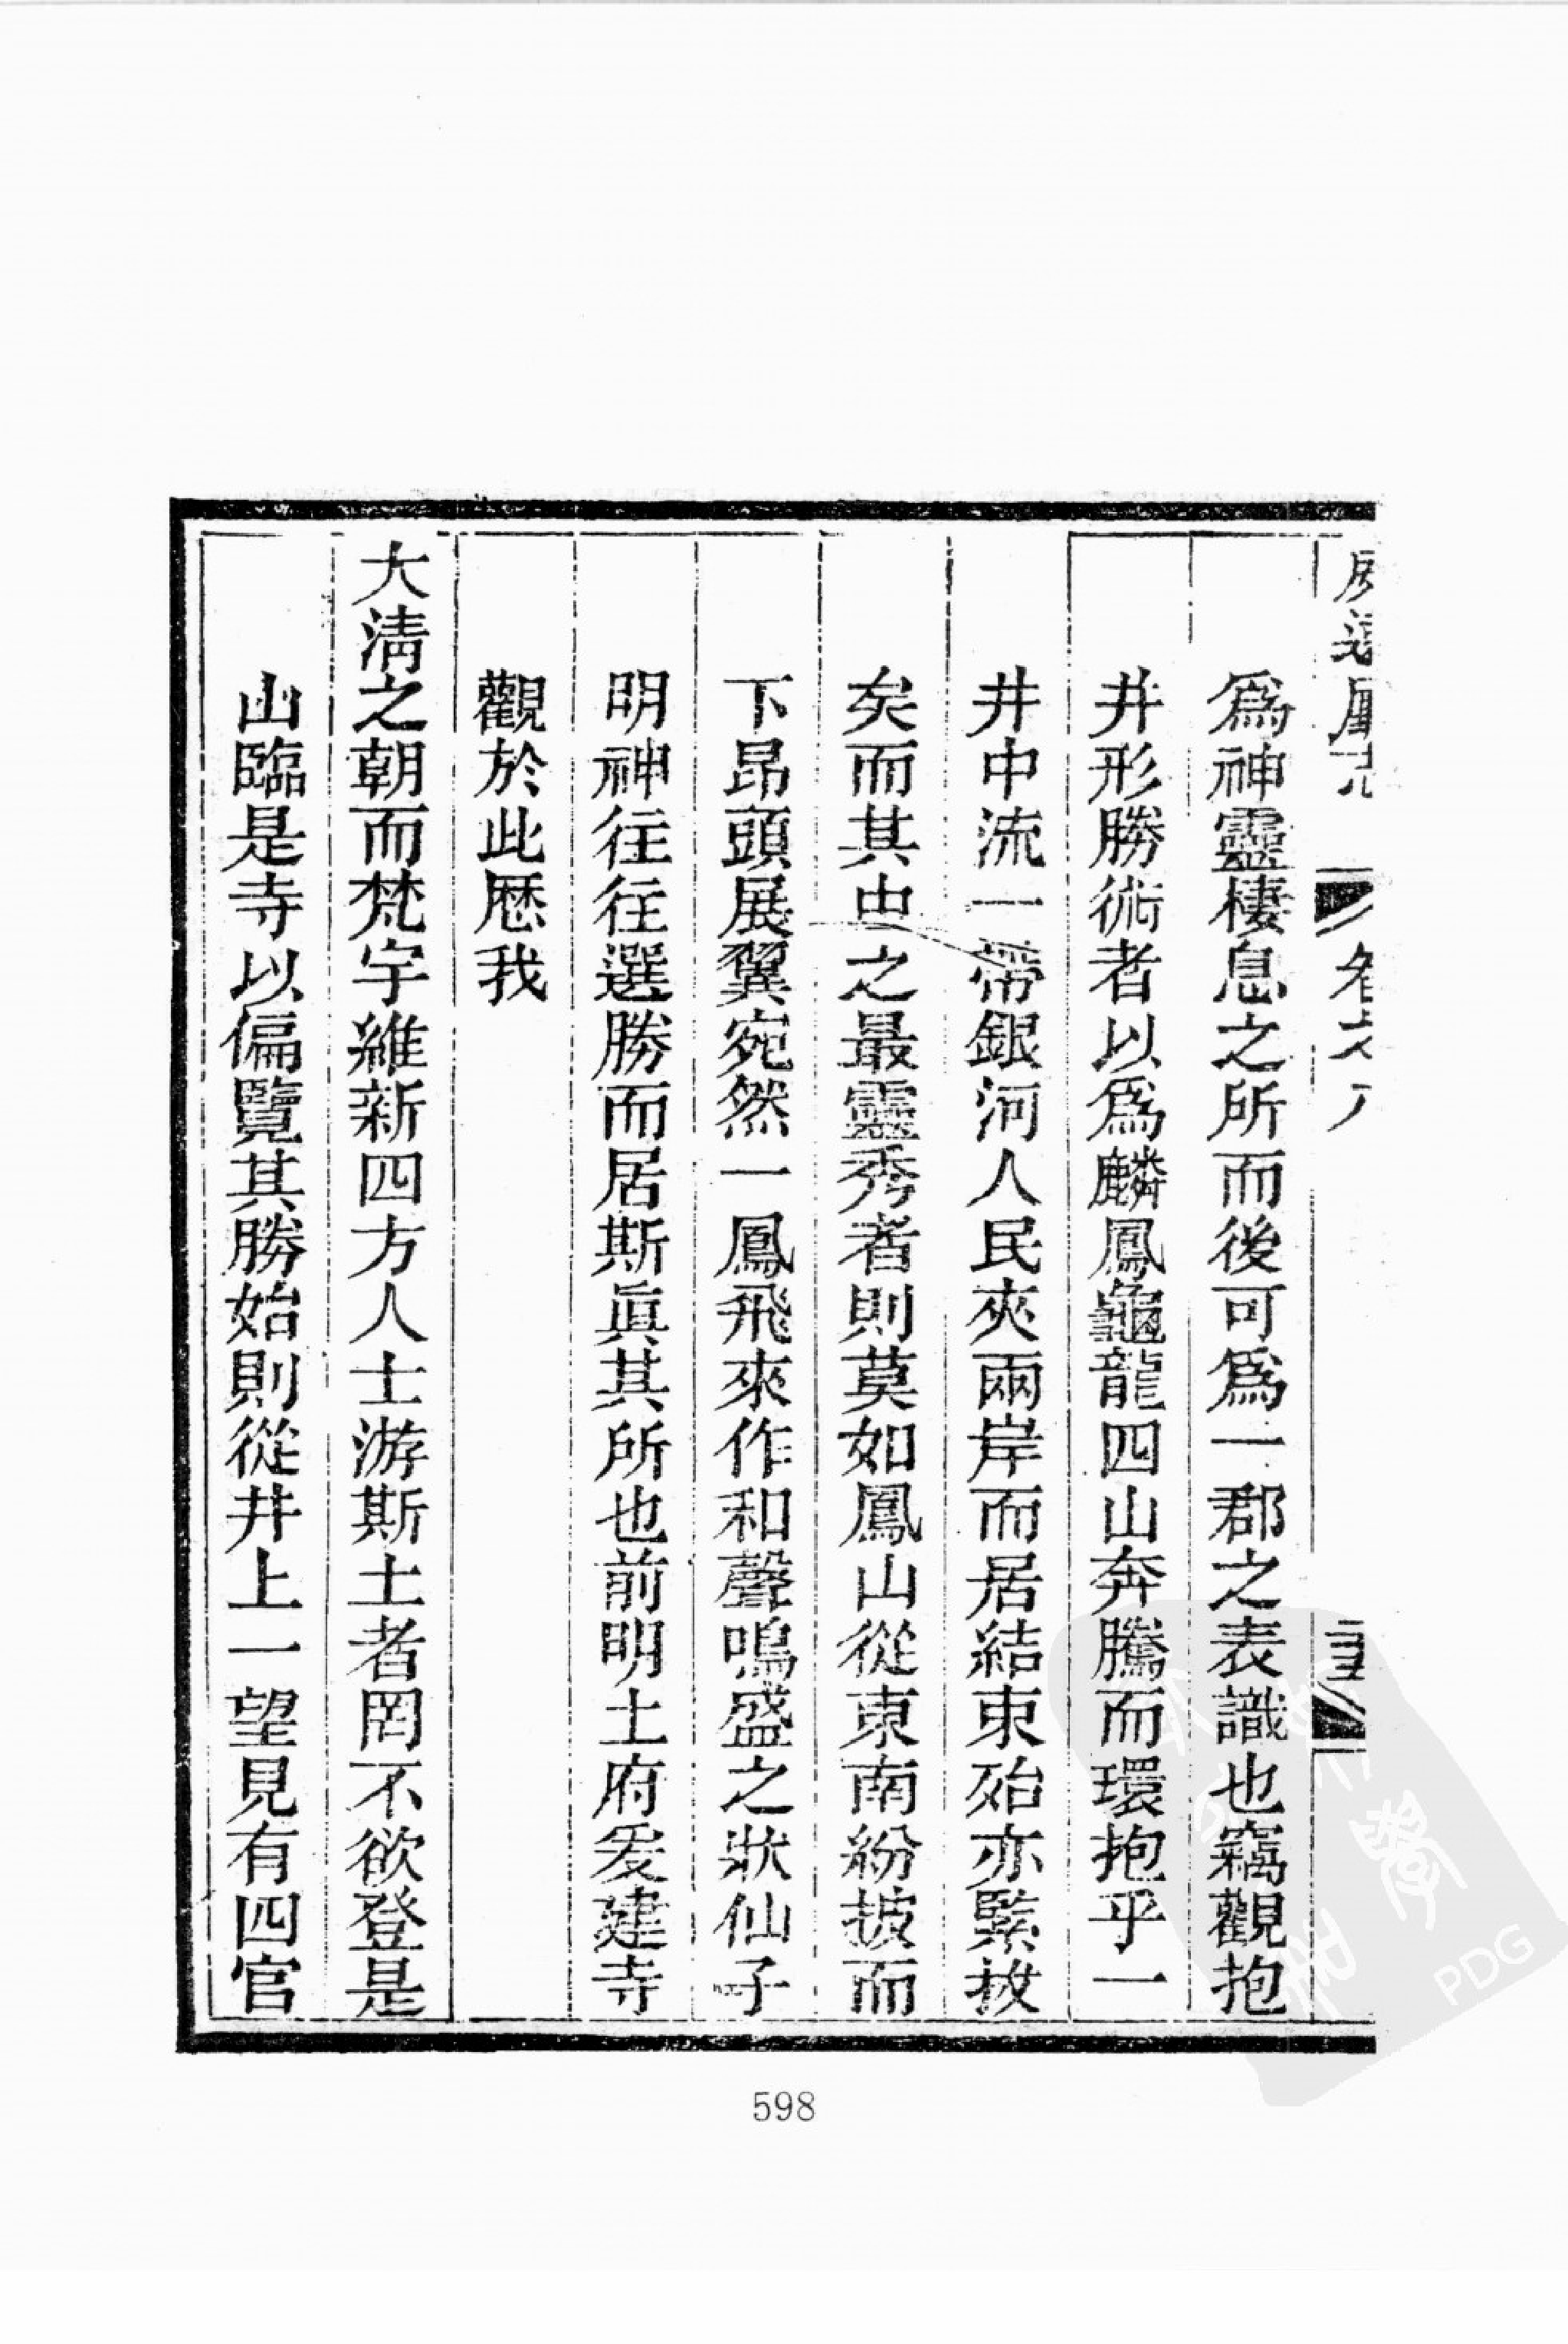 爲神靈棲息之所而後可爲一郡之表識也竊觀抱
井形勝術者以爲麟鳳龜龍四山奔騰而環抱乎一
井中流一帶銀河人民夾兩岸而居結束殆亦緊救
矣而其中之最靈秀者則莫如鳳山從東南紛披而
下昂頭展翼宛然一鳳飛來作和聲鳴盛之狀仙子
明神往往選勝而居斯眞其所也前明土府爰建寺
觀於此歷我
大淸之朝而梵宇維新四方人士游斯土者罔不欲登是
山臨是寺以偏覽其勝始則從井上一望見有四官
598
PDG